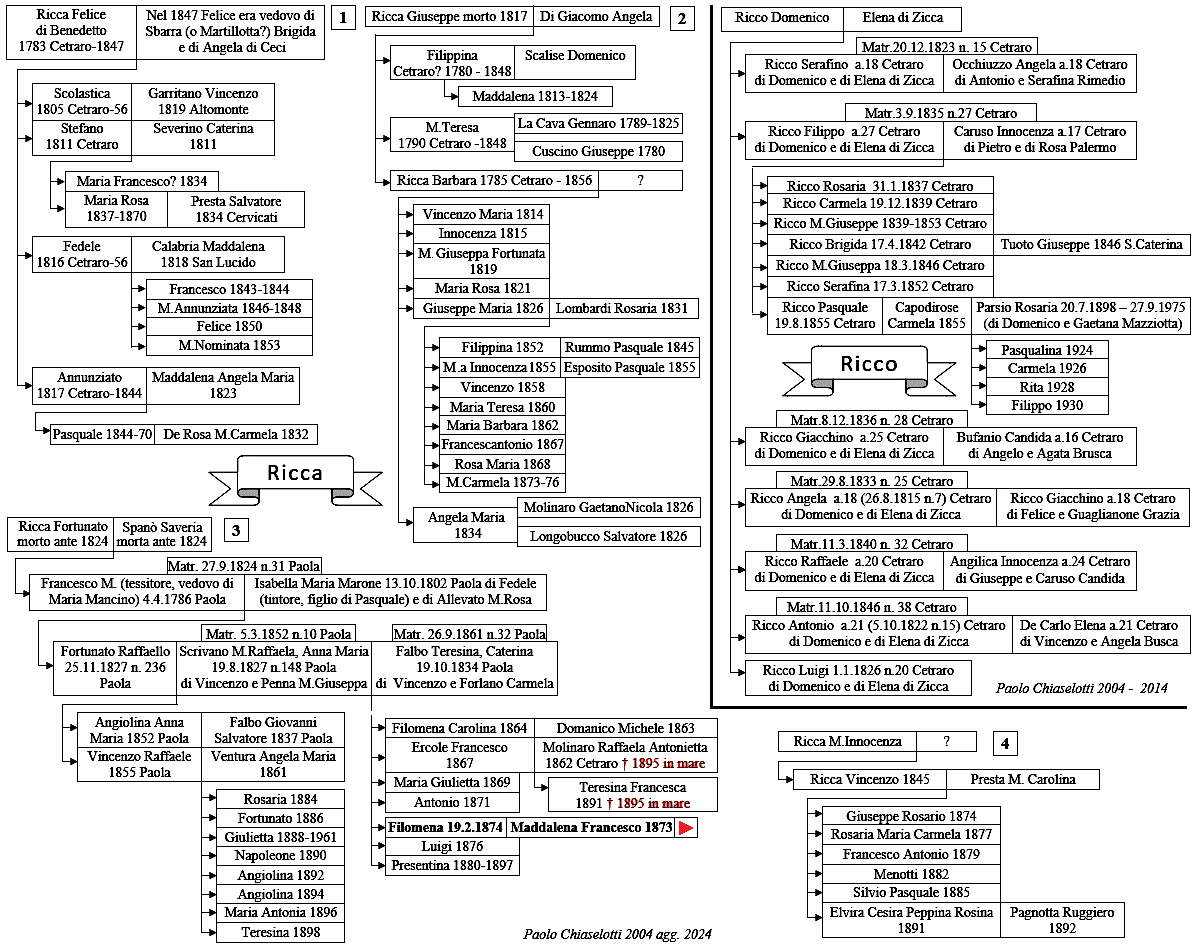 Ricca Felice
di Benedetto
1783 Cetraro-1847
Nel 1847 Felice era vedovo di
Sbarra (o Martillotta?) Brigida
e di Angela di Ceci
1
Scolastica
1805 Cetraro-56
Garritano Vincenzo
1819 Altomonte
Stefano
1811 Cetraro
Severino Caterina
1811
Maria Francesco? 1834
Maria Rosa
1837-1870
Presta Salvatore
1834 Cervicati
Fedele
1816 Cetraro-56
Calabria Maddalena
1818 San Lucido
Francesco 1843-1844
M.Annunziata 1846-1848
Felice 1850
M.Nominata 1853
Annunziato
1817 Cetraro-1844
Maddalena Angela Maria
1823
Pasquale 1844-70
De Rosa M.Carmela 1832
Ricca
Ricca Giuseppe morto 1817
Di Giacomo Angela
2
Filippina
Cetraro? 1780 - 1848
Scalise Domenico
Maddalena 1813-1824
M.Teresa
1790 Cetraro -1848
La Cava Gennaro 1789-1825
Cuscino Giuseppe 1780
Ricca Barbara 1785 Cetraro - 1856
?
Vincenzo Maria 1814
Innocenza 1815
M. Giuseppa Fortunata
1819
Maria Rosa 1821
Giuseppe Maria 1826
Lombardi Rosaria 1831
Filippina 1852
Rummo Pasquale 1845
M.a Innocenza 1855
Esposito Pasquale 1855
Vincenzo 1858
Maria Teresa 1860
Maria Barbara 1862
Francescantonio 1867
Rosa Maria 1868
M.Carmela 1873-76
Angela Maria
1834
Molinaro GaetanoNicola 1826
Longobucco Salvatore 1826
Ricca Fortunato
morto ante 1824
Spanò Saveria
morta ante 1824
3
Matr. 27.9.1824 n.31 Paola
Francesco M. (tessitore, vedovo di
Maria Mancino) 4.4.1786 Paola
Isabella Maria Marone 13.10.1802 Paola di Fedele
(tintore, figlio di Pasquale) e di Allevato M.Rosa
Matr. 5.3.1852 n.10 Paola
Matr. 26.9.1861 n.32 Paola
Fortunato Raffaello
25.11.1827 n. 236
Paola
Scrivano M.Raffaela, Anna Maria
19.8.1827 n.148 Paola
di Vincenzo e Penna M.Giuseppa
Falbo Teresina, Caterina
19.10.1834 Paola
di Vincenzo e Forlano Carmela
Angiolina Anna
Maria 1852 Paola
Falbo Giovanni
Salvatore 1837 Paola
Vincenzo Raffaele
1855 Paola
Ventura Angela Maria
1861
Rosaria 1884
Fortunato 1886
Giulietta 1888-1961
Napoleone 1890
Angiolina 1892
Angiolina 1894
Maria Antonia 1896
Teresina 1898
Filomena Carolina 1864
Domanico Michele 1863
Ercole Francesco
1867
Molinaro Raffaela Antonietta
1862 Cetraro † 1895 in mare
Teresina Francesca
1891 † 1895 in mare
Maria Giulietta 1869
Antonio 1871
Filomena 19.2.1874
Maddalena Francesco 1873
Luigi 1876
Presentina 1880-1897
Paolo Chiaselotti 2004 agg. 2024
Ricco Domenico
Elena di Zicca
Matr.20.12.1823 n. 15 Cetraro
Ricco Serafino a.18 Cetraro
di Domenico e di Elena di Zicca
Occhiuzzo Angela a.18 Cetraro
di Antonio e Serafina Rimedio
Matr.3.9.1835 n.27 Cetraro
Ricco Filippo a.27 Cetraro
di Domenico e di Elena di Zicca
Caruso Innocenza a.17 Cetraro
di Pietro e di Rosa Palermo
Ricco Rosaria 31.1.1837 Cetraro
Ricco Carmela 19.12.1839 Cetraro
Ricco M.Giuseppe 1839-1853 Cetraro
Ricco Brigida 17.4.1842 Cetraro
Tuoto Giuseppe 1846 S.Caterina
Ricco M.Giuseppa 18.3.1846 Cetraro
Ricco Serafina 17.3.1852 Cetraro
Ricco Pasquale
19.8.1855 Cetraro
Capodirose
Carmela 1855
Parsio Rosaria 20.7.1898 – 27.9.1975
(di Domenico e Gaetana Mazziotta)
Pasqualina 1924
Carmela 1926
Rita 1928
Filippo 1930
Ricco
Matr.8.12.1836 n. 28 Cetraro
Ricco Giacchino a.25 Cetraro
di Domenico e di Elena di Zicca
Bufanio Candida a.16 Cetraro
di Angelo e Agata Brusca
Matr.29.8.1833 n. 25 Cetraro
Ricco Angela a.18 (26.8.1815 n.7) Cetraro
di Domenico e di Elena di Zicca
Ricco Giacchino a.18 Cetraro
di Felice e Guaglianone Grazia
Matr.11.3.1840 n. 32 Cetraro
Ricco Raffaele a.20 Cetraro
di Domenico e di Elena di Zicca
Angilica Innocenza a.24 Cetraro
di Giuseppe e Caruso Candida
Matr.11.10.1846 n. 38 Cetraro
Ricco Antonio a.21 (5.10.1822 n.15) Cetraro
di Domenico e di Elena di Zicca
De Carlo Elena a.21 Cetraro
di Vincenzo e Angela Busca
Ricco Luigi 1.1.1826 n.20 Cetraro
di Domenico e di Elena di Zicca
Paolo Chiaselotti 2004 - 2014
Ricca M.Innocenza
?
4
Ricca Vincenzo 1845
Presta M. Carolina
Giuseppe Rosario 1874
Rosaria Maria Carmela 1877
Francesco Antonio 1879
Menotti 1882
Silvio Pasquale 1885
Elvira Cesira Peppina Rosina
1891
Pagnotta Ruggiero
1892